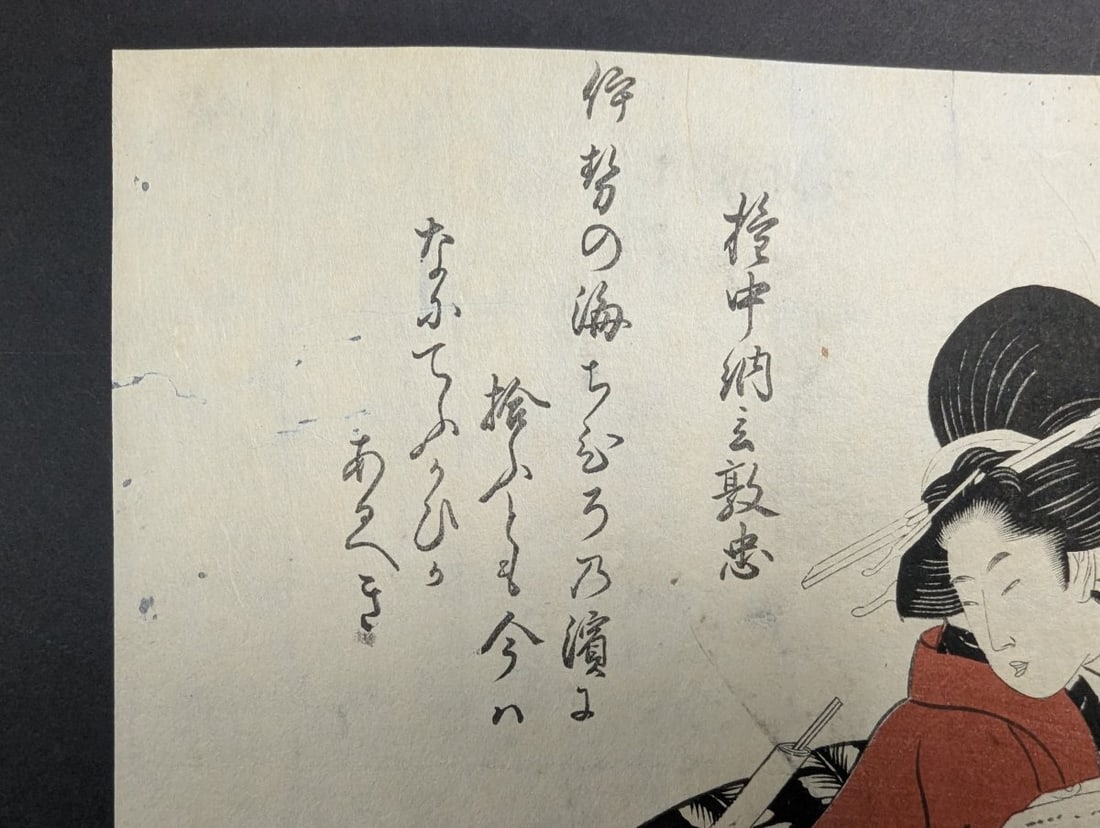 権中納言敦忠
伊勢の海ちひろの濱に
拾ふとも今ハ
なにてふかひか
あるへき